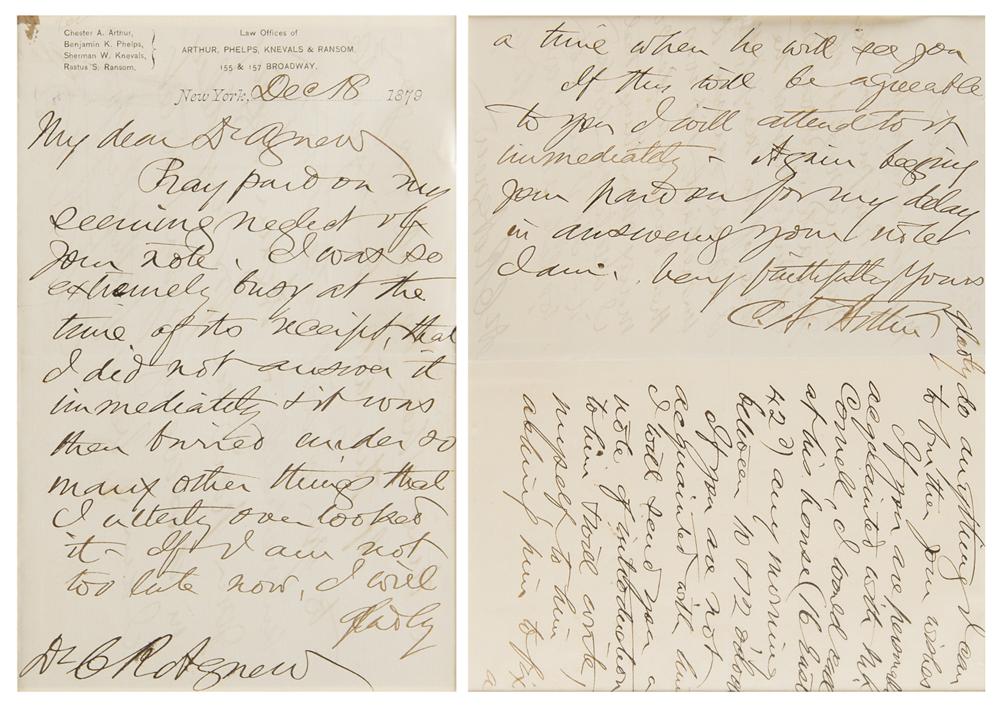 Chester A. Arthur,
Benjamin K. Phelps,
Sherman W. Knevals,
Rastus S. Ransom.
Law Offices of
ARTHUR, PHELPS, KNEVALS & RANSOM
155 & 157 BROADWAY.
New York, Dec 18 1879
My dear Dr Agnew
Pray pardon my
seeming neglect of
your note. I was so
extremely busy at the
time of its receipt, that
I did not answer it
immediately & it was
then buried under so
many other things that
I utterly overlooked
it - If I am not
too late now, I will
gladly
Dr C R Agnew
gladly do anything I can
to further your wishes
If you are personally
acquainted with
Cornell, I would
at his house (16 East
42d) any morning
between 10 & 12 oclock
If you are not
acquainted with him
I will send you a
note of introduction
to him & will write
myself to him
asking him to fix
a
a time when he will see you
If this will be agreeable
to you I will attend to it
immediately - Again begging
your pardon for my delay
in answering your note
I am, very faithfully Yours
C. A. Arthur